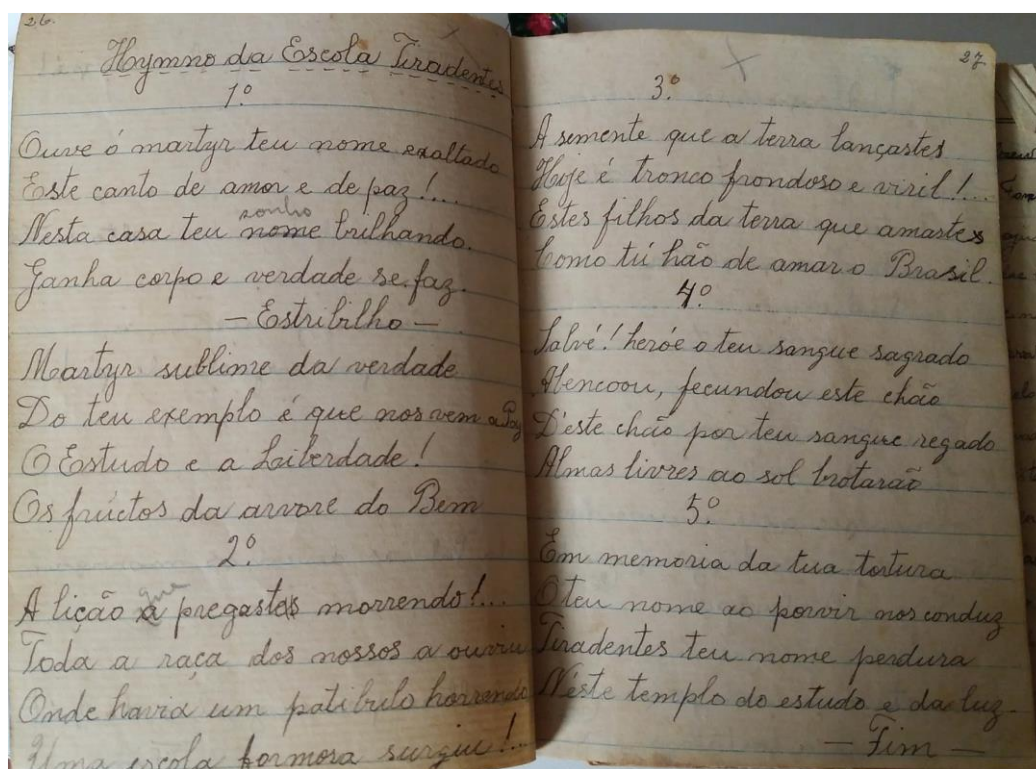 26.
Hymno da Escola Tiradentes
1º
Ouve ó martyr teu nome exaltado
Este canto de amor e de paz!...
sonho
Nesta casa teu nome brilhando.
Ganha corpo e verdade se faz.
— Estribilho —
Martyr sublime da verdade
Do teu exemplo é que nos vem a Paz
O Estudo e a Liberdade!
Os frúctos da arvore do Bem
2º
que
A lição a pregastes morrendo!...
Toda a raça dos nossos a ouviu
Onde havia um patibulo horrendo
Uma escola formosa surgiu!...
27
3º
A semente que a terra lançastes
Hoje é tronco frondoso e viril!...
Estes filhos da terra que amastes
Como tú hão de amar o Brasil.
4º
Salvé! heróe o teu sangue sagrado
Abencoou, fecundou este chão
D'este chão por teu sangue regado
Almas livres ao sol brotarão
5º
Em memoria da tua tortura
O teu nome ao porvir nos conduz
Tiradentes teu nome perdura
Néste templo do estudo e da luz
— Fim —